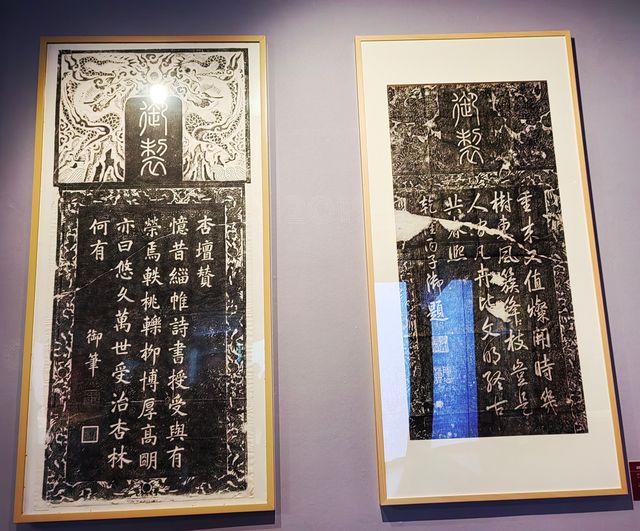 御製
杏壇贊
憶昔緇帷詩書授受與有
榮焉軼桃轢柳博厚高明
亦曰悠久萬世受治杏林
何有
御筆
御製
重來又值燦開時幾
樹東風簇絳枝豈是
人間凡卉比文明終古
共春熙
子御題